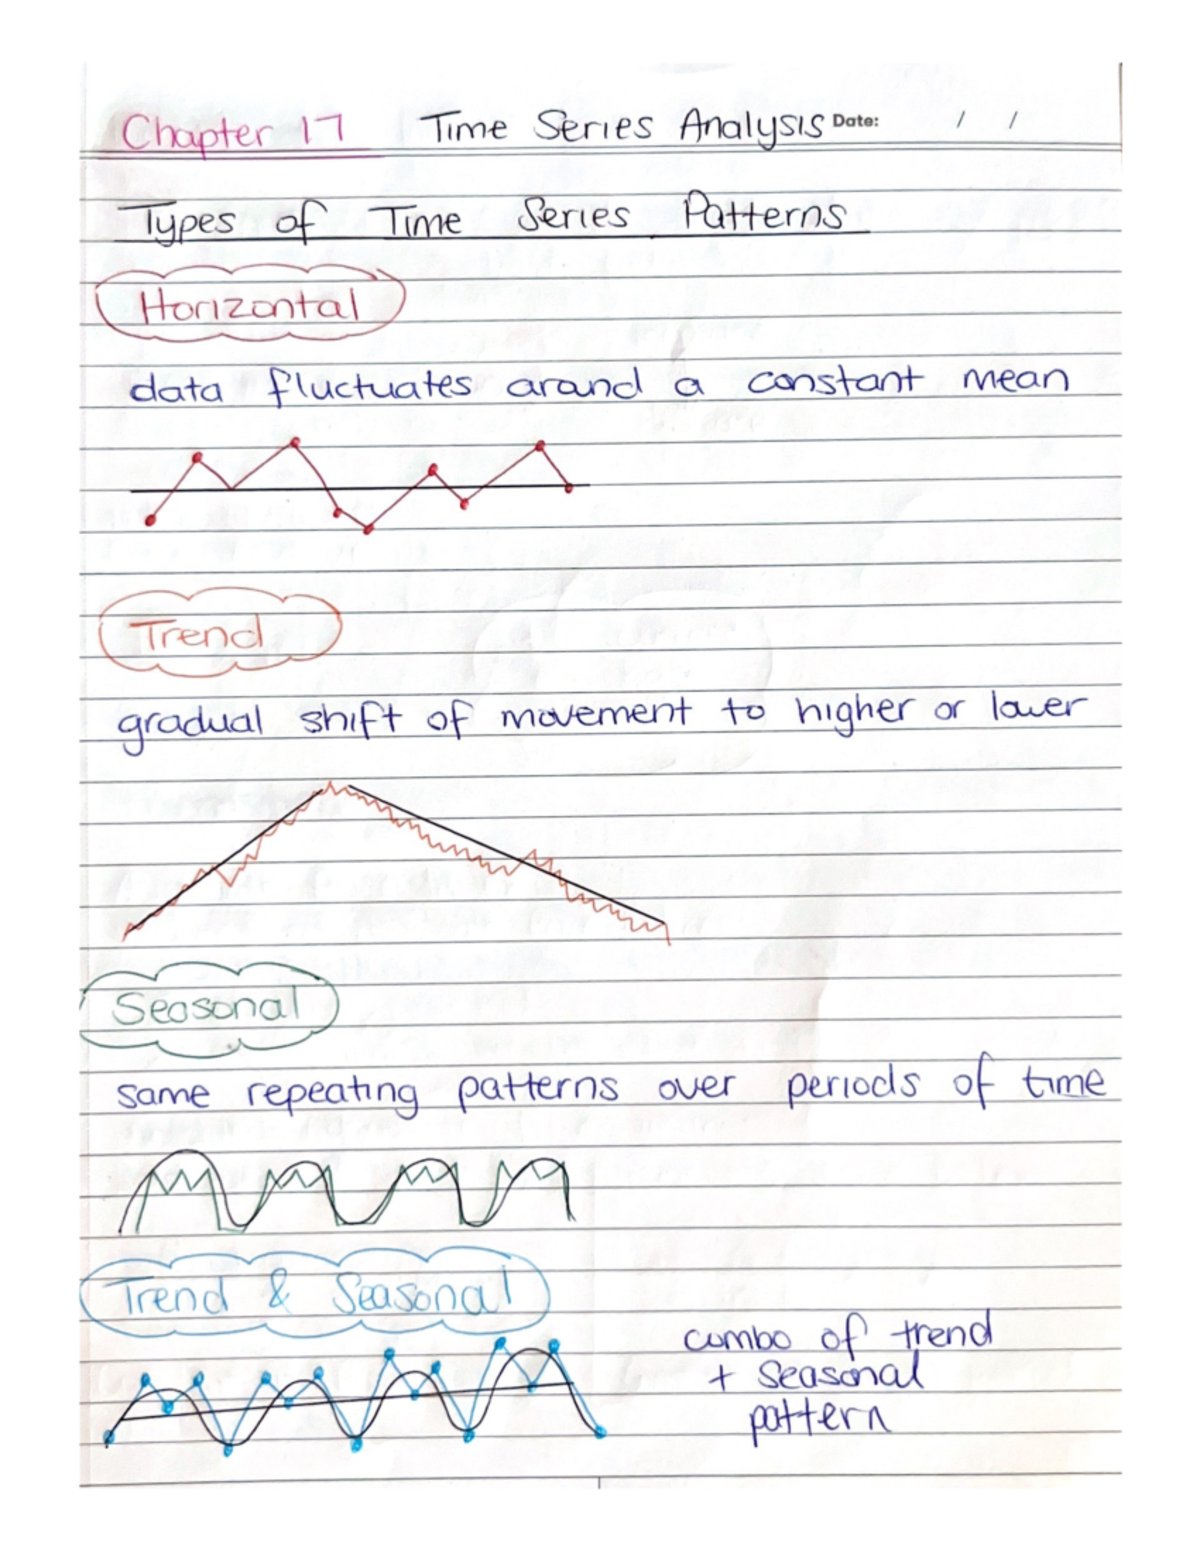 Chapter 17 Time Series Analysis Date: / /
Types of Time Series Patterns
Horizontal
data fluctuates around a constant mean
Trend
gradual shift of movement to higher or lower
Seasonal
same repeating patterns over periods of time
Trend & Seasonal
combo of trend
+ seasonal
pattern